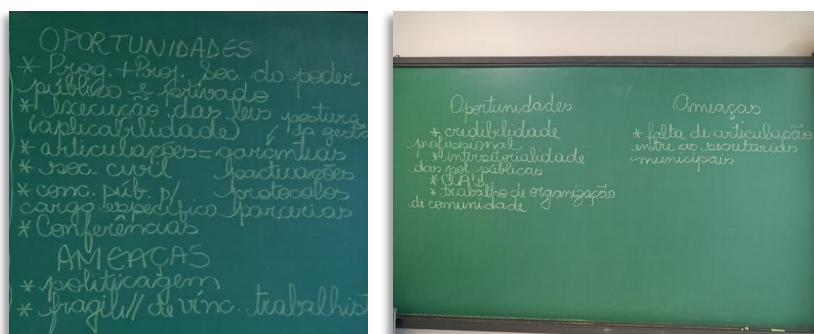 OPORTUNIDADES
* Prog. + Proj. Soc. do poder
público e privado
* Execução das leis postura
(aplicabilidade) da gestã
* articulações = garantias
* soc. civil pactuações
* conc. púb. p/ protocolos
cargo específico parcerias
* Conferências
AMEAÇAS
* politicagem
* fragili// de vínc. trabalhist
Oportunidades
* credibilidade
profissional
* intersetorialidade
das pol. públicas
* trabalho de organização
de comunidade
Ameaças
* falta de articulação
entre as secretarias
municipais